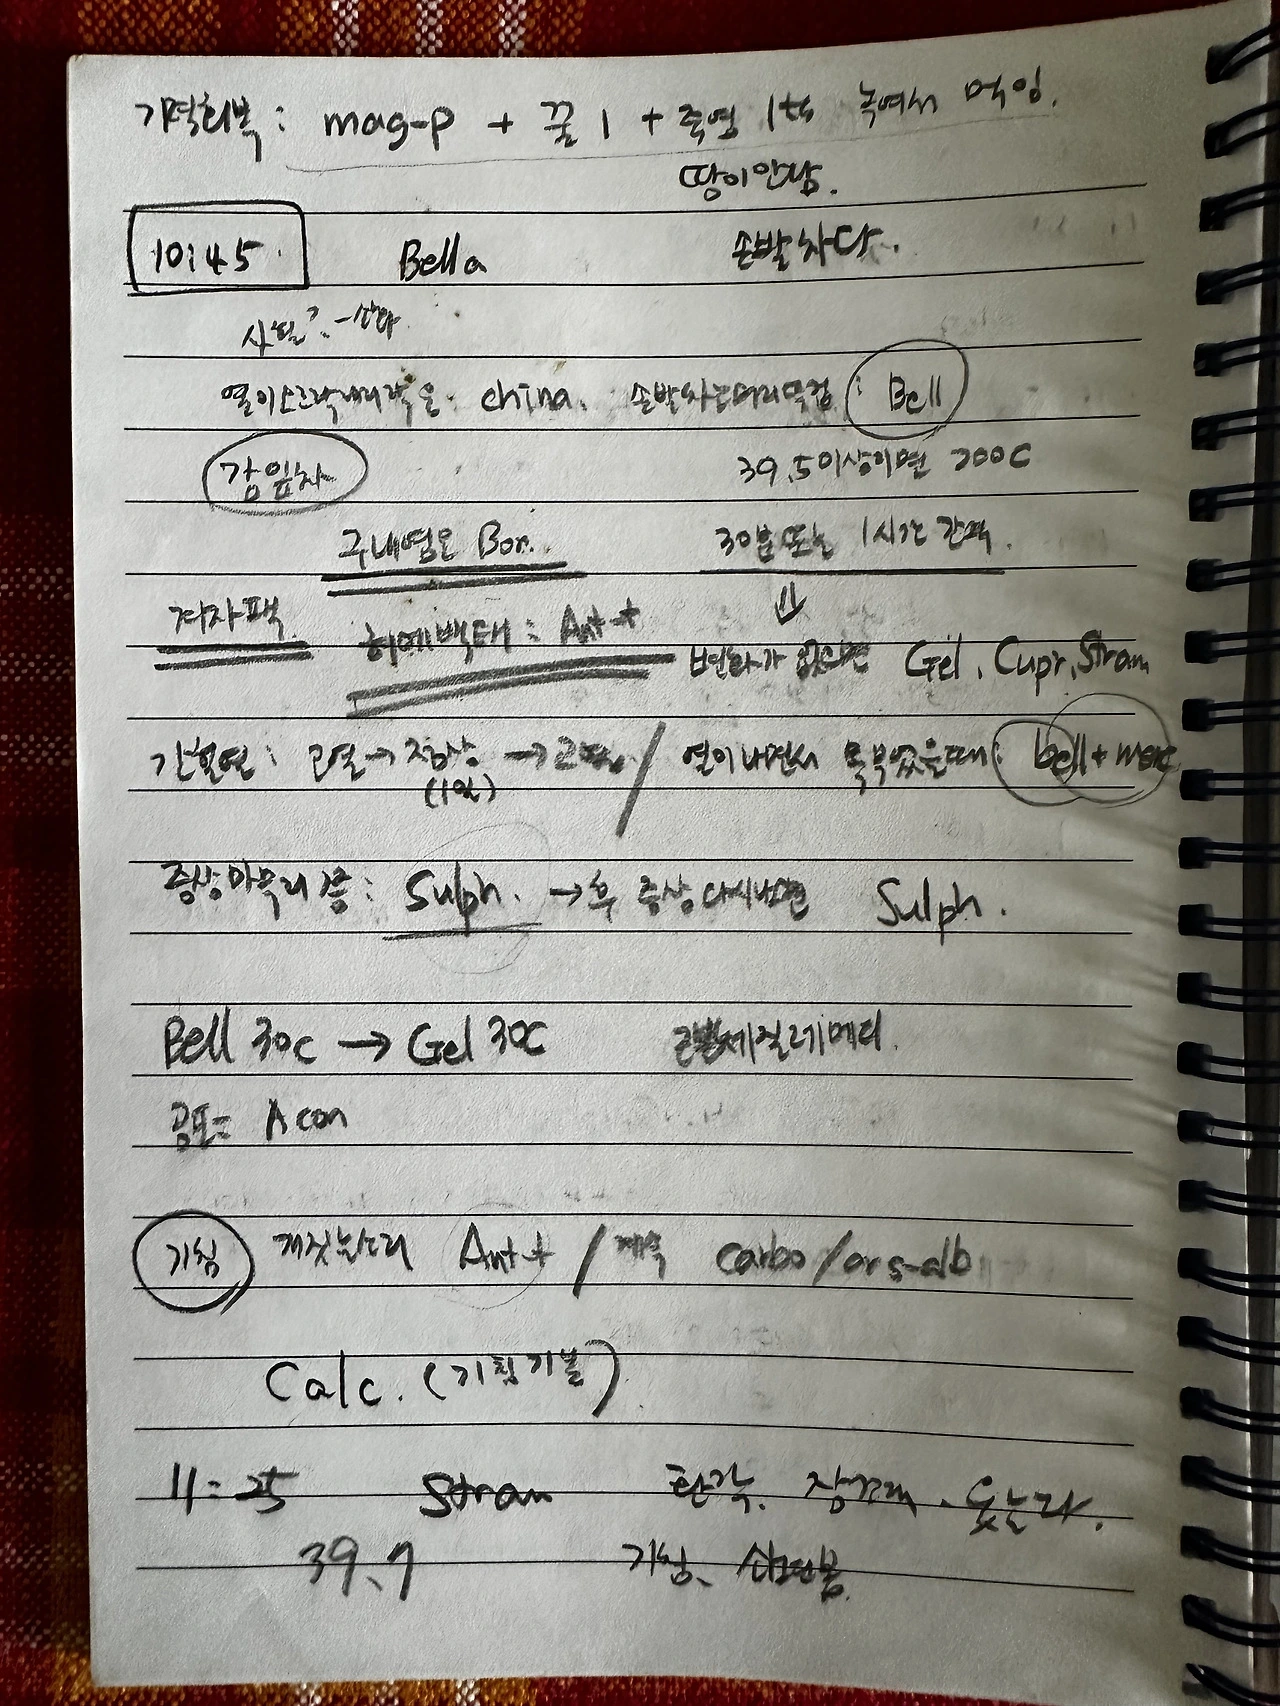 기력회복 : mag-p + 꿀 1 + 죽염 1ts 녹여서 먹임.
땀이안남.
10:45 Bella 손발차다.
열이오르락내리락은 china. 손발차는머리뜨겁 : Bell
감잎차 39.5이상이면 200C
구내염은 Bor. 30분 또는 1시간 간격.
겨자팩 혀에백태 : Ant-t ⇓
변화가 없으면 Gel, Cupr, Stram
간헐열 : 고열→정상→고열 / 열이나면서 목 부었을때 : bell + merc
(1일)
증상마무리쯤 : Sulph. → 후 증상다시나오면 Sulph.
Bell 30C → Gel 30C 고열체질레메디.
공포= Acon
기침 개짖는소리 Ant-t / 계속 carbo/ars-alb
Calc. (기침기별)
11:25 Stram 환각. 잠꼬대. 웃는다.
39.7 기침、